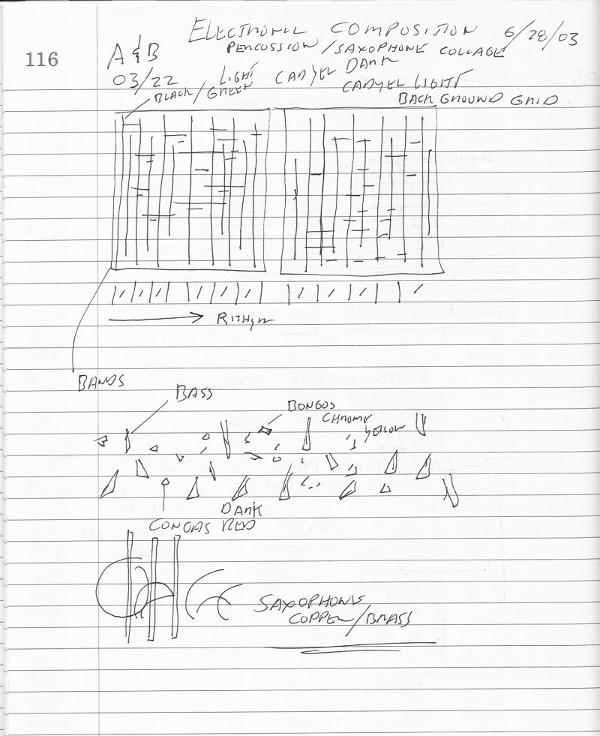 116
ELECTRONIC COMPOSITION 6/28/03
A & B PERCUSSION/SAXOPHONE COLLAGE
03/22 LIGHT CADYEL DARK
BLACK/GREEN CADYEL LIGHT
BACKGROUND GRID
RITHYM
BANDS
BASS
BONGOS
CHROME
YELLOW
DARK
CONGAS RED
SAXOPHONE
COPPER/BRASS